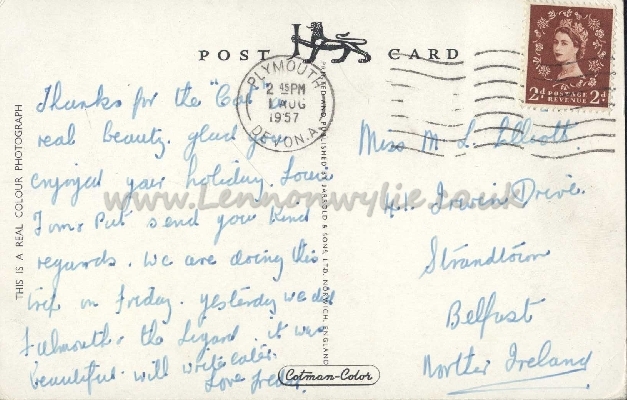 POST CARD
PLYMOUTH
2 45PM
1 AUG
1957
DEVON.A
2d POSTAGE REVENUE 2d
THIS IS A REAL COLOUR PHOTOGRAPH
Thanks for the "Cat" a
real beauty. glad you
enjoyed your holiday. Louie
Tom & Pat send you kind
regards. We are doing this
trip on Friday. yesterday we did
Falmouth & the Lizard it was
beautiful will write later.
Love Freda.
PRINTED AND PUBLISHED BY JARROLD & SONS LTD. NORWICH, ENGLAND
Miss M. L. Elliott
Irwin Drive.
Strandtown
Belfast
Norther Ireland
Cotman-Color
www.Lennonwylie.co.uk